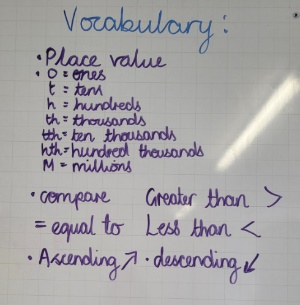 Vocabulary:
• Place value
• O = ones
t = tens
h = hundreds
th = thousands
tth = ten thousands
hth = hundred thousands
M = millions
• compare Greater than >
= equal to Less than <
• Ascending ↗ • descending ↙